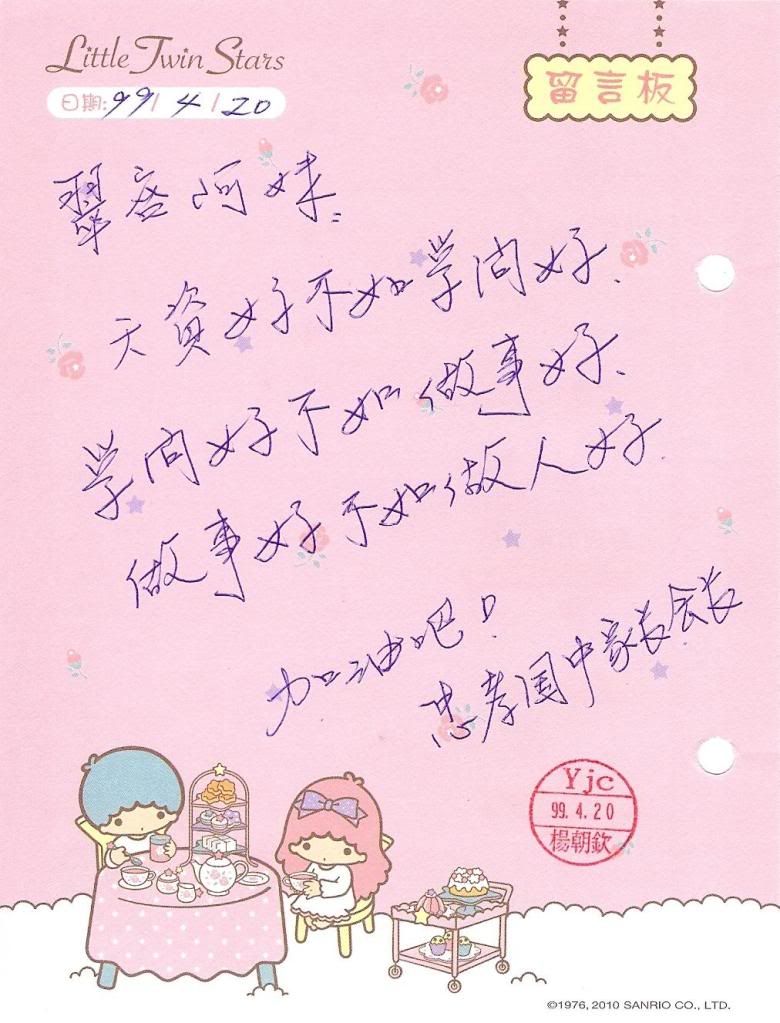 Little Twin Stars
留言板
日期:99/4/20
翠容阿妹:
天資好不如学问好、
学问好不如做事好、
做事好不如做人好.
加油吧!
忠孝国中家長会長
Yjc
99.4.20
楊朝欽
©1976, 2010 SANRIO CO., LTD.